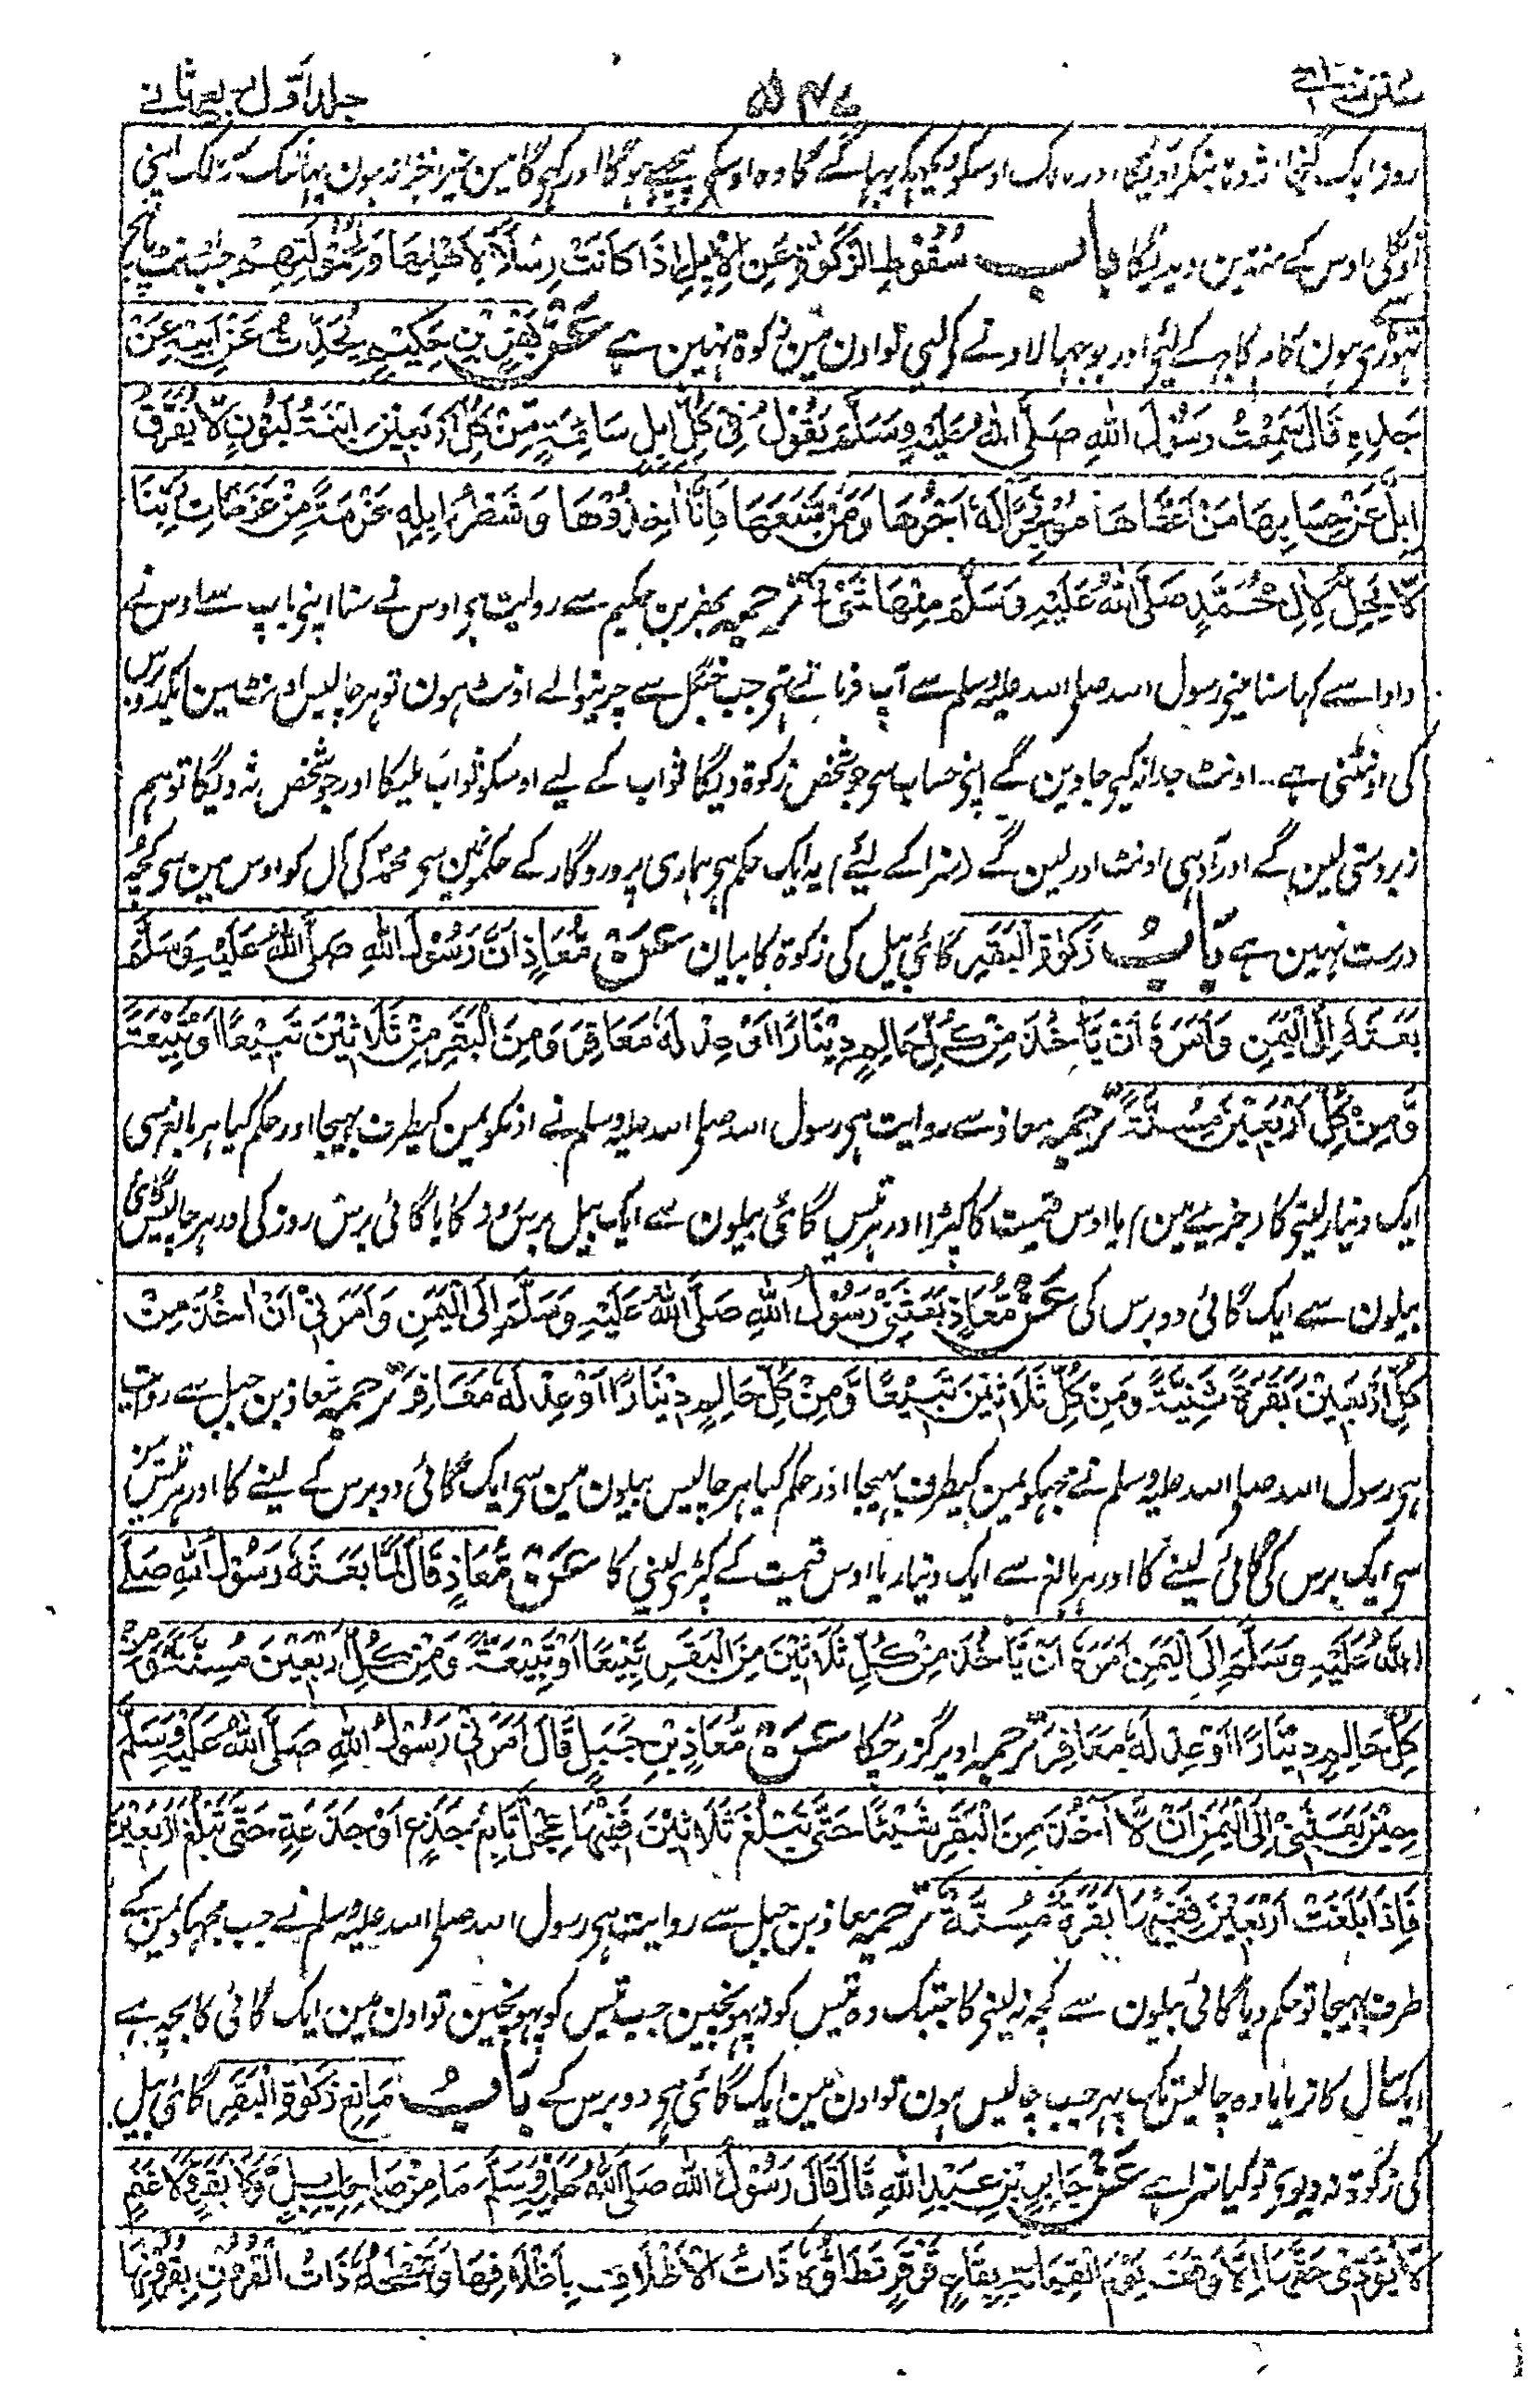 سنن نسائی ۵۴۶ جلد اول
روز ایک گنجا اژدہا بنکر آویگا اور مالک اوسکو دیکھکر بہاگے گا وہ اوسکے پیچھے ہوگا اور کہیگا مین تیرا خزانہ ہون یہانتک کہ مالک اپنی
اونگلی اوس کے منہ مین دیدیگا بَاب سُقُوْطِ الزَّكٰوةِ عَنِ الْاِبِلِ اِذَا كَانَتْ رِسْلًا لِاَهْلِهَا وَلِحُمُوْلَتِهِمْ جب اونٹ پالنے
تہوڑی ہون کام کاج کے لیئے اور بوجہا لادنے کو لیی تو اون مین زکوۃ نہین ہے عَنْ بَهْزِ بْنِ حَكِيْمٍ يُحَدِّثُ عَنْ اَبِيْهِ عَنْ
جَدِّهٖ قَالَ سَمِعْتُ رَسُوْلَ اللّٰهِ صَلَّى اللّٰهُ عَلَيْهِ وَسَلَّمَ يَقُوْلُ فِيْ كُلِّ اِبِلٍ سَائِمَةٍ مِّنْ كُلِّ اَرْبَعِيْنَ ابْنَةُ لَبُوْنٍ لَّا يُفَرَّقُ
اِبِلٌ عَنْ حِسَابِهَا مَنْ اَعْطَاهَا مُؤْتَجِرًا لَهٗ اَجْرُهَا وَمَنْ مَّنَعَهَا فَاِنَّا اٰخِذُوْهَا وَشَطْرَ اِبِلِهٖ عَزْمَةً مِّنْ عَزَمَاتِ رَبِّنَا
لَا يَحِلُّ لِاٰلِ مُحَمَّدٍ صَلَّى اللّٰهُ عَلَيْهِ وَسَلَّمَ مِنْهَا شَيْءٌ ترجمہ بہز بن حکیم سے روایت ہی اوس نے سنا اپنی باپ سے اوس نے
دادا سے کہا سنا مینے رسول اللہ صلی اللہ علیہ وسلم سے آپ فرماتے تہے جب جنگل سے چرنیوالے اونٹ ہون تو ہر چالیس اونٹ مین ایک دو برس
کی اونٹنی ہے ۔ اونٹ جدا نہ کیے جاوین گے اپنی حساب سے جو شخص زکوۃ دیگا ثواب کے لیے اوسکو ثواب ملیگا اور جو شخص نہ دیگا تو ہم
زبردستی لین گے اور آدہی اونٹ اور لین گے (سزا کے لیئے) یہ ایک حکم ہی ہماری پروردگار کے حکمون مین سی محمد کی آل کو اوس مین سی کچہ
درست نہین ہے بَابُ زَكٰوةِ الْبَقَرِ گائی بیل کی زکوۃ کا بیان عَنْ مُّعَاذٍ اَنَّ رَسُوْلَ اللّٰهِ صَلَّى اللّٰهُ عَلَيْهِ وَسَلَّمَ
بَعَثَهٗ اِلَى الْيَمَنِ وَاَمَرَهٗ اَنْ يَّاْخُذَ مِنْ كُلِّ حَالِمٍ دِيْنَارًا اَوْ عِدْلَهٗ مَعَافِرَ وَمِنَ الْبَقَرِ مِنْ ثَلَاثِيْنَ تَبِيْعًا اَوْ تَبِيْعَةً
وَّمِنْ كُلِّ اَرْبَعِيْنَ مُسِنَّةً ترجمہ معاذ سے روایت ہی رسول اللہ صلی اللہ علیہ وسلم نے اونکو یمن کیطرف بہیجا اور حکم کیا ہر بالغ سی
ایک دینار لینی کا (جزیے مین) یا اوس قیمت کا کپڑا اور ہر تیس گائی بیلون سے ایک بیل برس روز کا یا گائی برس روز کی اور ہر چالیس گائی
بیلون سے ایک گائی دو برس کی عَنْ مُّعَاذٍ بَعَثَنِيْ رَسُوْلُ اللّٰهِ صَلَّى اللّٰهُ عَلَيْهِ وَسَلَّمَ اِلَى الْيَمَنِ وَاَمَرَنِيْ اَنْ اٰخُذَ مِنْ
كُلِّ اَرْبَعِيْنَ بَقَرَةً ثَنِيَّةً وَمِنْ كُلِّ ثَلَاثِيْنَ تَبِيْعًا وَّمِنْ كُلِّ حَالِمٍ دِيْنَارًا اَوْ عِدْلَهٗ مَعَافِرَ ترجمہ معاذ بن جبل سے روایت
ہی رسول اللہ صلی اللہ علیہ وسلم نے مجہکو یمن کیطرف بہیجا اور حکم کیا ہر چالیس بیلون مین سی ایک گائی دو برس کے لینے کا اور ہر تیس مین
سی ایک برس کی گائی لینے کا اور ہر بالغ سے ایک دینار یا اوس قیمت کے کپڑی لینی کا عَنْ مُّعَاذٍ قَالَ لَمَّا بَعَثَهٗ رَسُوْلُ اللّٰهِ صَلَّى
اللّٰهُ عَلَيْهِ وَسَلَّمَ اِلَى الْيَمَنِ اَمَرَهٗ اَنْ يَّاْخُذَ مِنْ كُلِّ ثَلَاثِيْنَ مِنَ الْبَقَرِ تَبِيْعًا اَوْ تَبِيْعَةً وَمِنْ كُلِّ اَرْبَعِيْنَ مُسِنَّةً وَّمِنْ
كُلِّ حَالِمٍ دِيْنَارًا اَوْ عِدْلَهٗ مَعَافِرَ ترجمہ اوپر گزر چکا عَنْ مُّعَاذِ بْنِ جَبَلٍ قَالَ اَمَرَنِيْ رَسُوْلُ اللّٰهِ صَلَّى اللّٰهُ عَلَيْهِ وَسَلَّمَ
حِيْنَ بَعَثَنِيْ اِلَى الْيَمَنِ اَنْ لَّا اٰخُذَ مِنَ الْبَقَرِ شَيْئًا حَتّٰى تَبْلُغَ ثَلَاثِيْنَ فَفِيْهَا عِجْلٌ تَابِعٌ جَذَعٌ اَوْ جَذَعَةٍ حَتّٰى تَبْلُغَ الْاَرْبَعِيْنَ
فَاِذَا بَلَغَتْ اَرْبَعِيْنَ فَفِيْهَا بَقَرَةٌ مُّسِنَّةٌ ترجمہ معاذ بن جبل سے روایت ہی رسول اللہ صلی اللہ علیہ وسلم نے جب مجہکو یمن کے
طرف بہیجا تو حکم دیا گائی بیلون سے کچہ نہ لینی کا جبتک وہ تیس کو نہ پہونچین جب تیس کو پہونچین تو اون مین ایک گائی کا بچہ ہے
ایک سال کا نر یا مادہ چالیس تک پہر جب چالیس ہون تو اون مین ایک گائی ہی دو برس کے بَابُ مَانِعِ زَكٰوةِ الْبَقَرِ گائی بیل
کی زکوۃ نہ دیوی تو کیا سزا ہے عَنْ جَابِرِ بْنِ عَبْدِ اللّٰهِ قَالَ قَالَ رَسُوْلُ اللّٰهِ صَلَّى اللّٰهُ عَلَيْهِ وَسَلَّمَ مَا مِنْ صَاحِبِ اِبِلٍ وَّلَا بَقَرٍ وَّلَا غَنَمٍ
لَّا يُؤَدِّيْ حَقَّهَا اِلَّا وُقِفَ يَوْمَ الْقِيَامَةِ بِقَاعٍ قَرْقَرٍ تَطَؤُهٗ ذَاتُ الْاَظْلَافِ بِاَظْلَافِهَا وَتَنْطَحُهٗ ذَاتُ الْقُرُوْنِ بِقُرُوْنِهَا